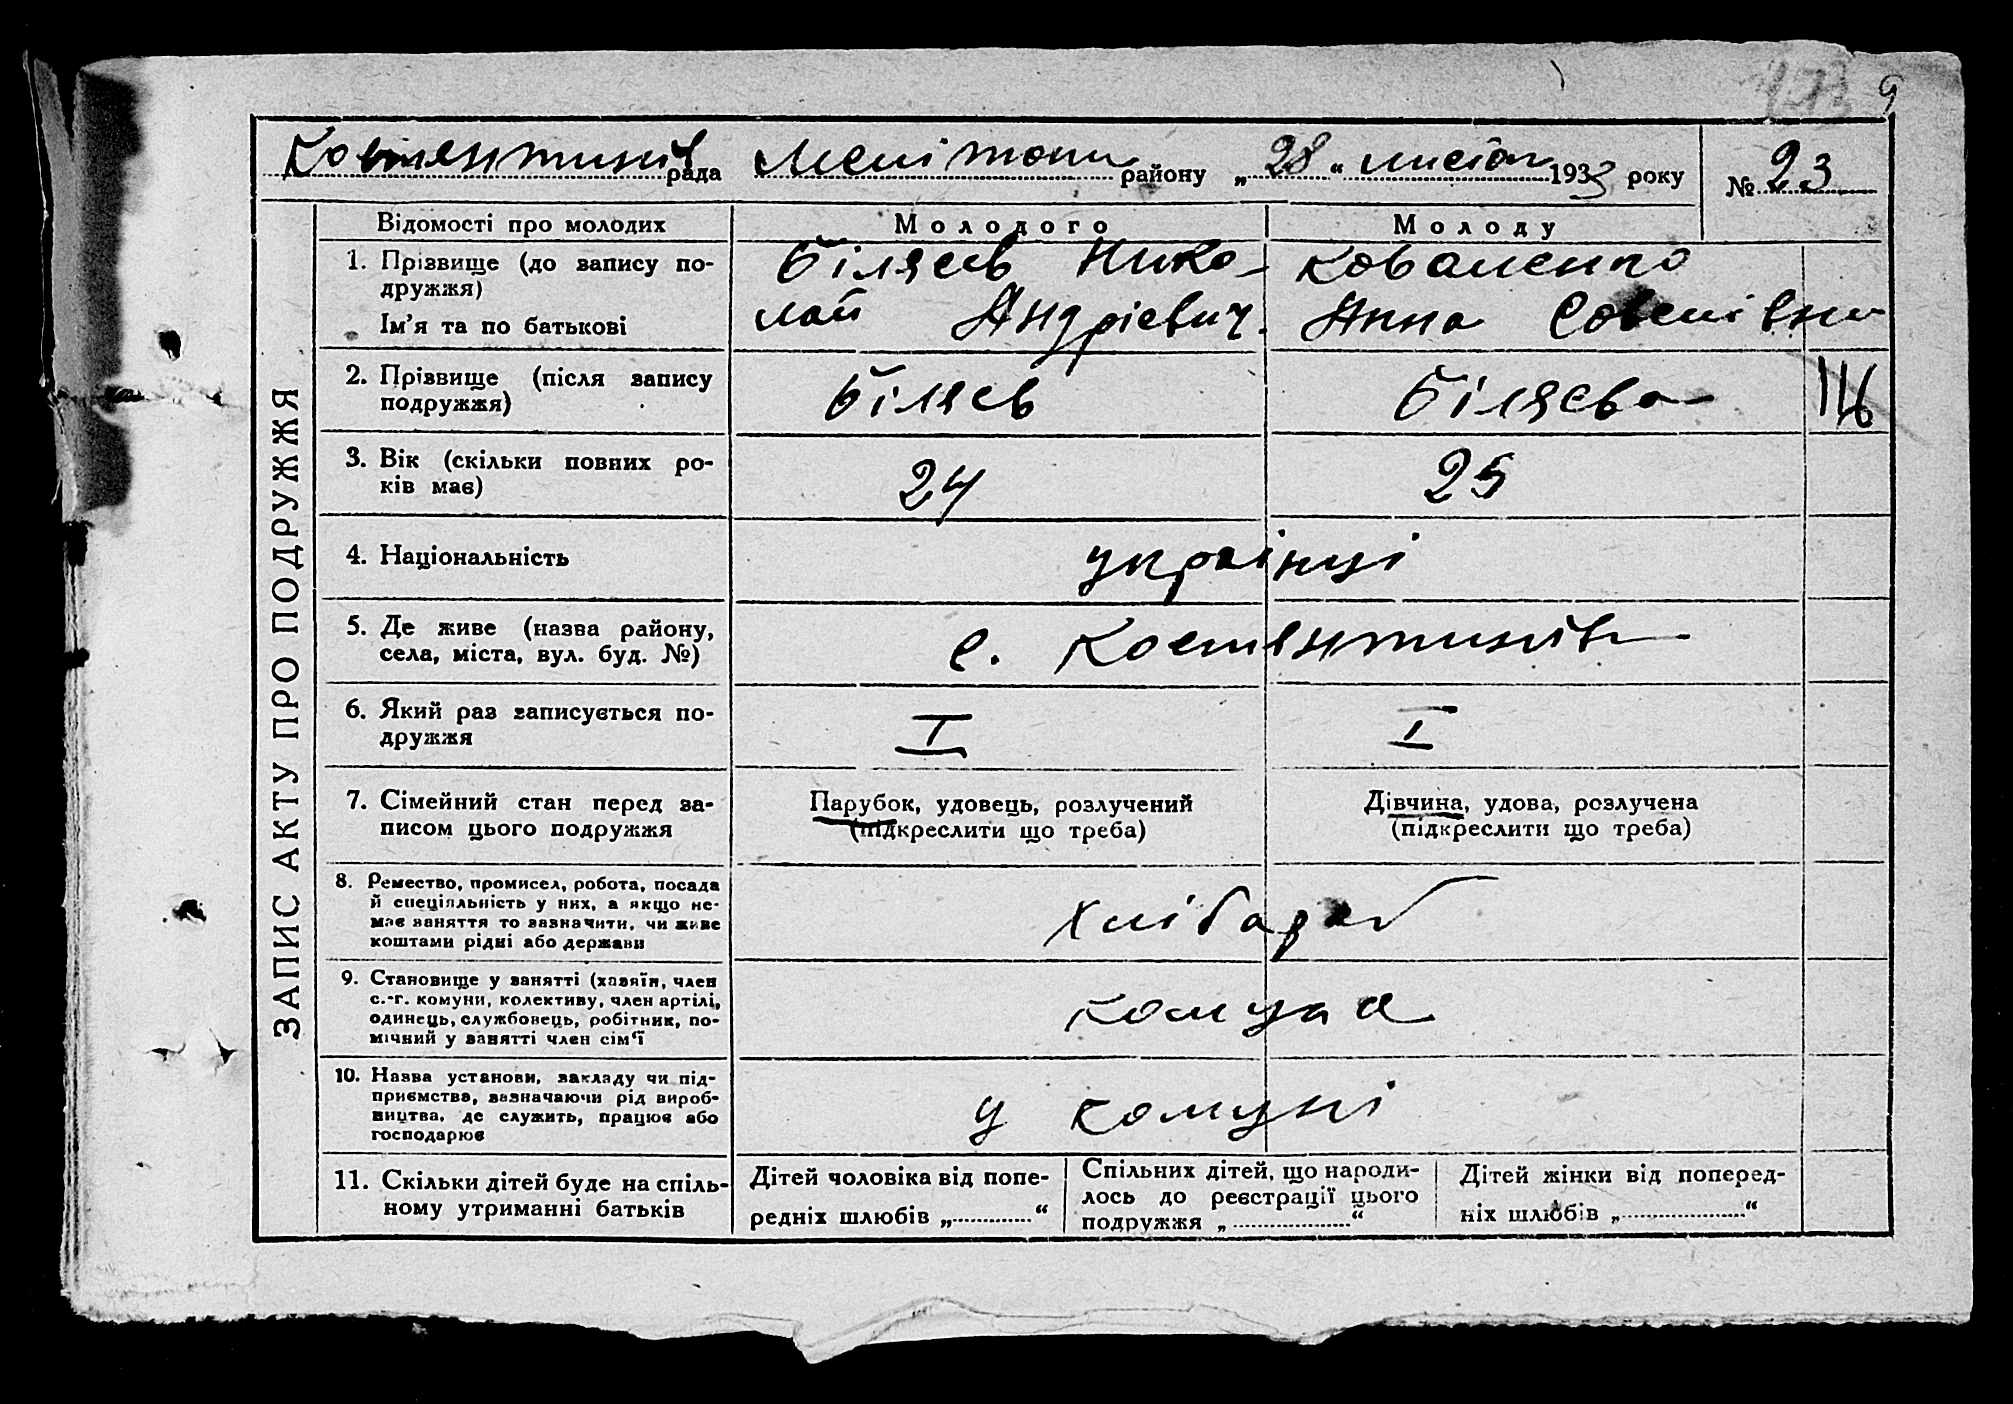 9
Костянтинів рада Мелітоп району „ 28 “ листоп 1933 року № 23
ЗАПИС АКТУ ПРО ПОДРУЖЖЯ
Відомості про молодих Молодого Молоду
1. Прізвище (до запису по-
дружжя)
Ім’я та по батькові
Біляєв Нико-
лай Андрієвич.
Коваленко
Анна Савелівна
2. Прізвище (після запису
подружжя)
Біляєв Біляєва 116
3. Вік (скільки повних ро-
ків має)
24 25
4. Національність
українці
5. Де живе (назва району,
села, міста, вул. буд. №)
с. Костянтинів
6. Який раз записується по-
дружжя
I I
7. Сімейний стан перед за-
писом цього подружжя
Парубок, удовець, розлучений
(підкреслити що треба)
Дівчина, удова, розлучена
(підкреслити що треба)
8. Ремество, промисел, робота, посада
й спеціяльність у них, а якщо не-
має заняття то зазначити, чи живе
коштами рідні або держави
хлібороб
9. Становище у занятті (хазяїн, член
с.-г. комуни, колективу, член артілі,
одинець, службовець, робітник, по-
мічний у занятті член сім’ї
комуна
10. Назва установи, закладу чи під-
приємства, зазначаючи рід вироб-
ництва, де служить, працює або
господарює
у комуні
11. Скільки дітей буде на спіль-
ному утриманні батьків
Дітей чоловіка від попе-
редніх шлюбів „ “
Спільних дітей, що народи-
лось до реєстрації цього
подружжя „ “
Дітей жінки від поперед-
ніх шлюбів „ “